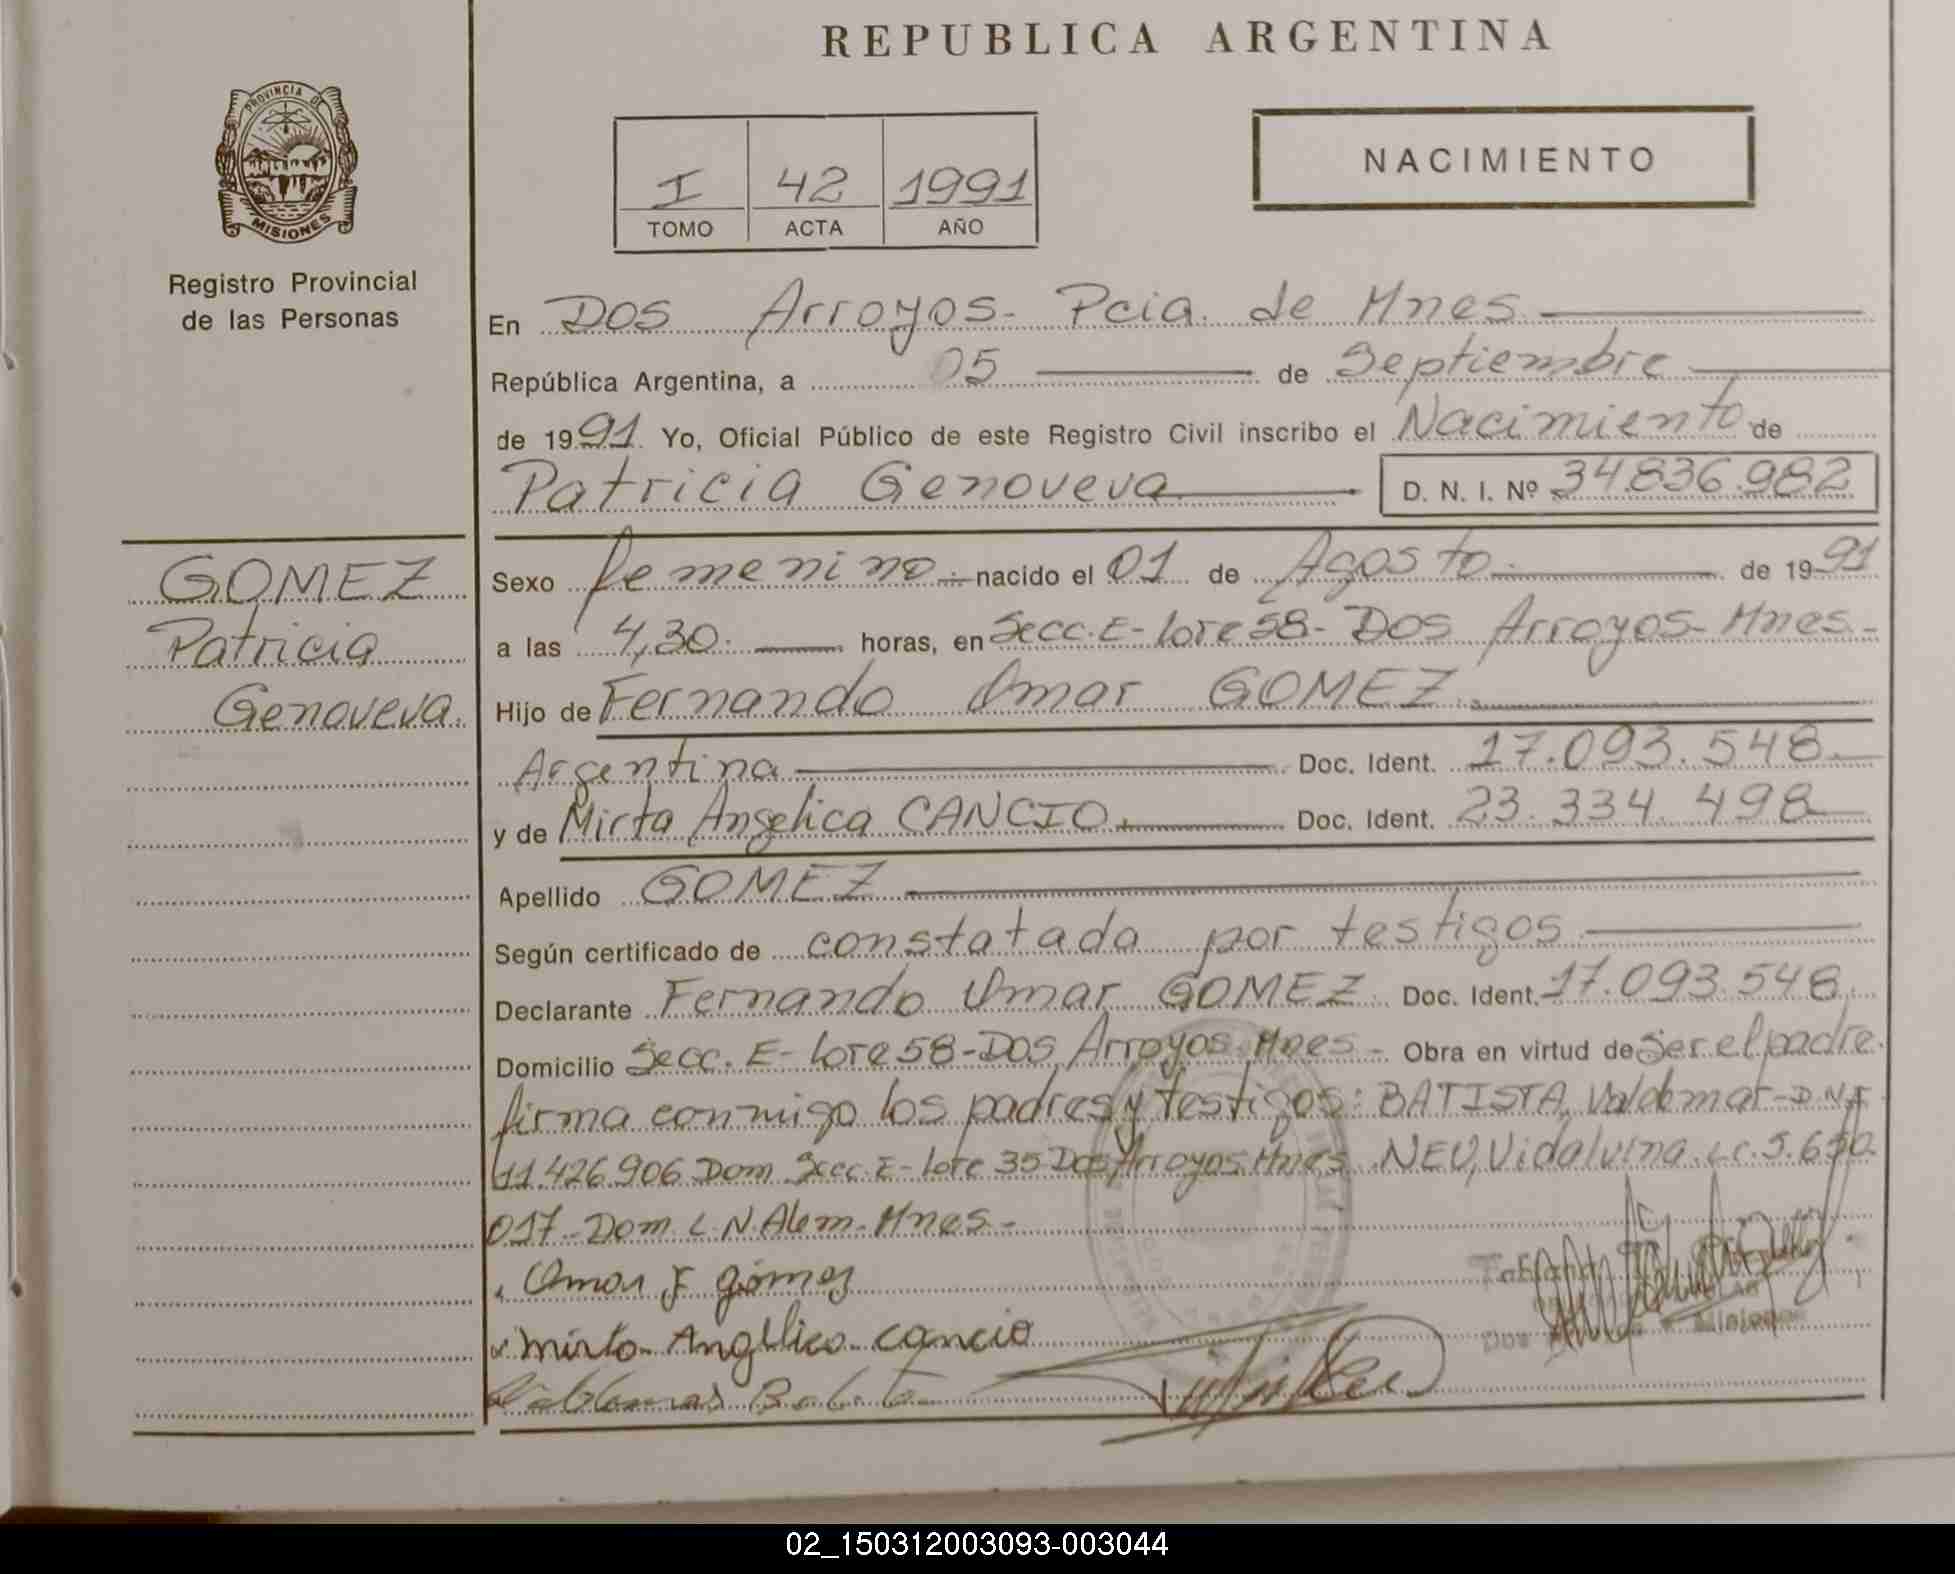 REPUBLICA ARGENTINA
PROVINCIA DE
MISIONES
Registro Provincial
de las Personas
I 42 1991
TOMO ACTA AÑO
NACIMIENTO
En Dos Arroyos- Pcia. de Mnes
República Argentina, a 05 de Septiembre
de 1991. Yo, Oficial Público de este Registro Civil inscribo el Nacimiento de
Patricia Genoveva D. N. I. Nº 34.836.982
GOMEZ
Patricia
Genoveva.
Sexo femenino.- nacido el 01 de Agosto de 1991
a las 4,30. horas, en Secc. E- lote 58- Dos Arroyos- Mnes.-
Hijo de Fernando Omar GOMEZ.
Argentina Doc. Ident. 17.093.548.-
y de Mirta Angelica CANCIO. Doc. Ident. 23.334.498
Apellido GOMEZ
Según certificado de constatada por testigos
Declarante Fernando Omar GOMEZ Doc. Ident. 17.093.548.
Domicilio Secc. E- lote 58-Dos Arroyos Mnes- Obra en virtud de Ser el padre.
firma conmigo los padres y testigos: BATISTA, Valdemar-D.N.I.
11.426.906 Dom. Secc. E- lote 35 Dos Arroyos Mnes. NEU, Vidalvina. L.C. 5.650.
017- Dom. L. N. Alem- Mnes-
Omar F gómez
mirta Angelica cancio
Misiones
02_150312003093-003044